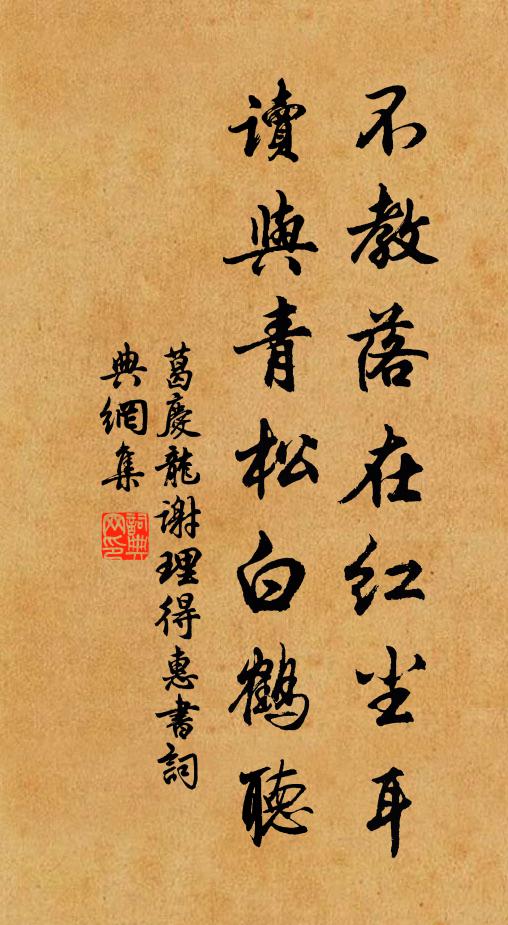 不教落在红尘耳
讀與青松白鶴聽
葛慶龍謝理得惠書詞
典網集
詞典
网印